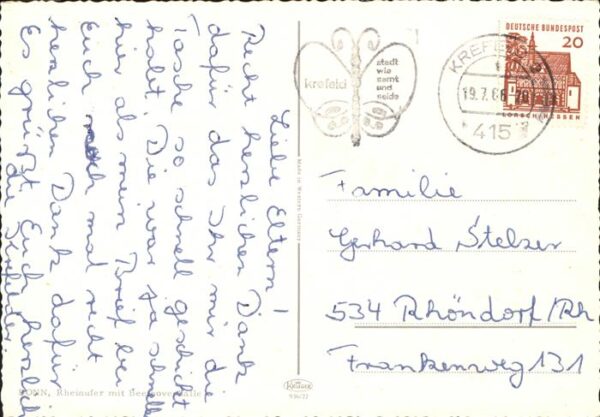 Liebe Eltern!
Recht herzlichen Dank
dafür das Ihr mir die
Tasche so schnell geschickt
habt. Die war ja schneller
hier als mein Brief bei
Euch noch mal recht
herzlichen Dank dafür
Es grüßt Euch herzlich
die
BONN, Rheinufer mit Beethovenhalle
krefeld
stadt
wie
samt
und
seide
KREFELD
19.7.66
415
DEUTSCHE BUNDESPOST
20
LORSCH/HESSEN
Familie
Gerhard Stelzer
534 Rhöndorf/Rh
Frankenweg 131